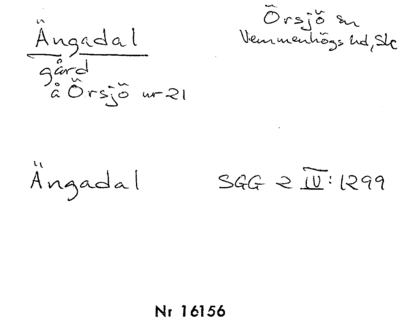 Ängadal
gård
å Örsjö nr 21
Örsjö sn
Vemmenhögs hd, Sk
Ängadal
SGG 2 IV: 1299
Nr 16156